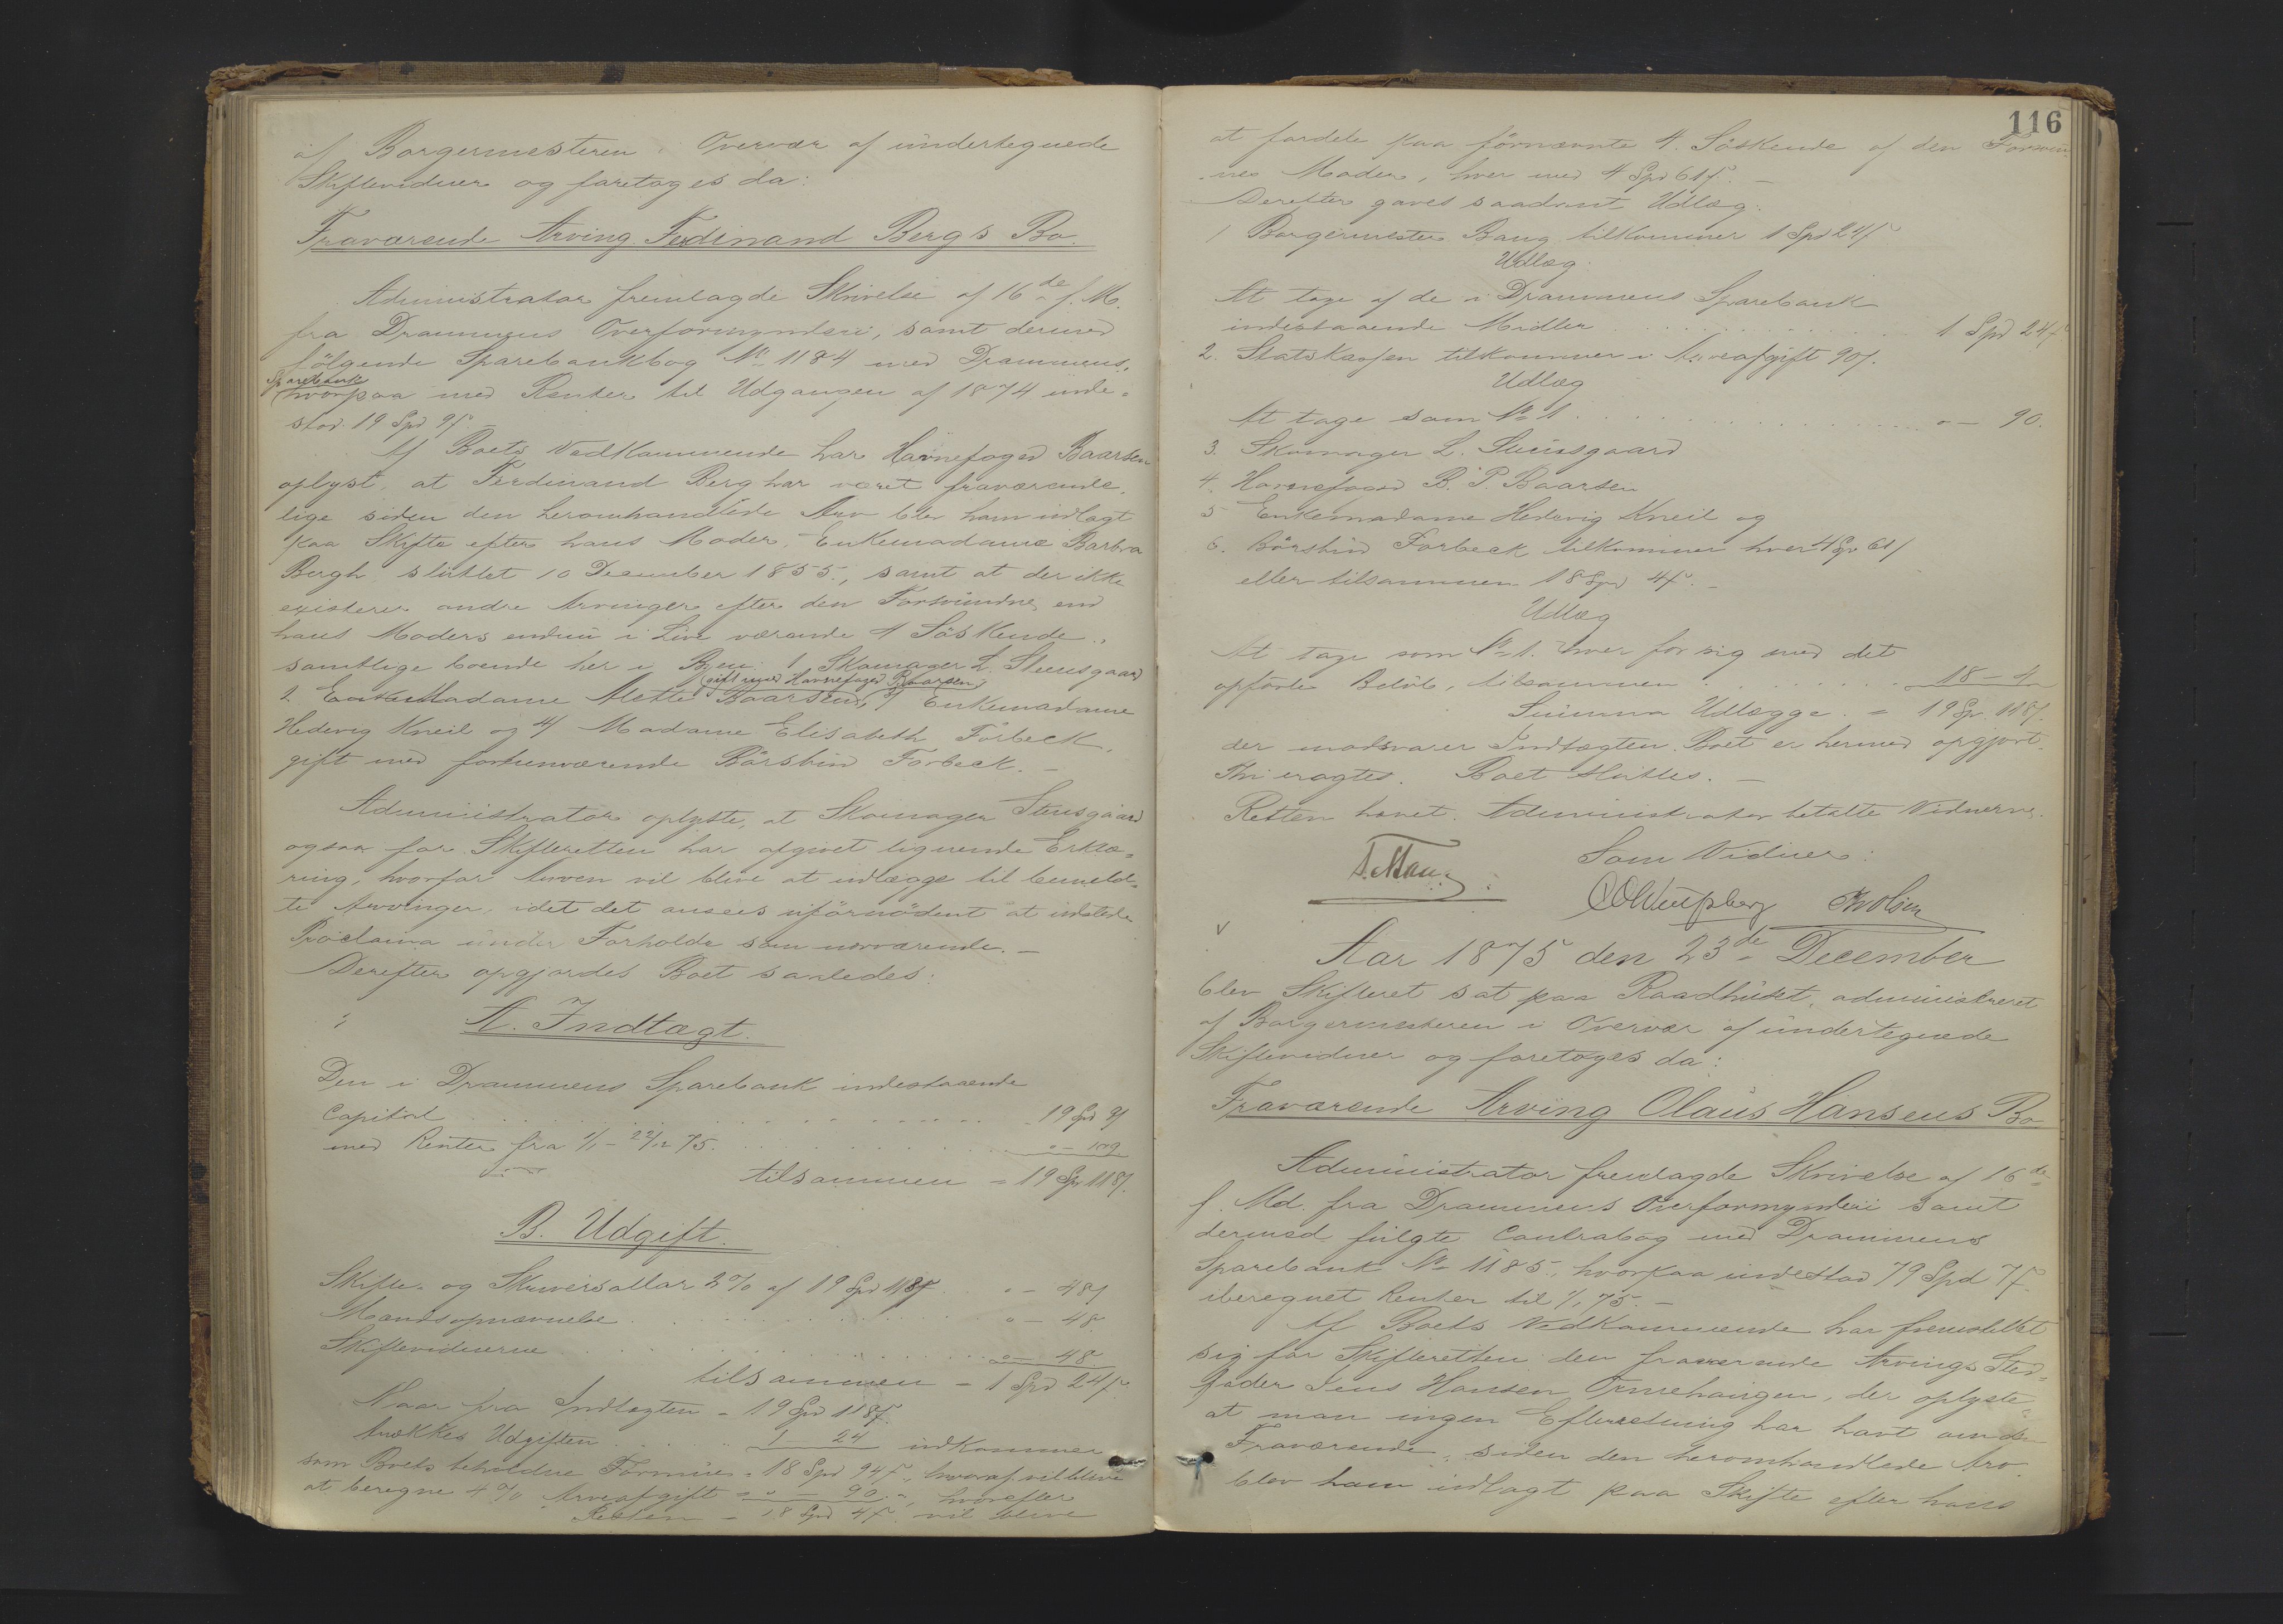 af Borgermesteren i Overvær af undertegnede
Skiftevidner og foretoges da:
Fraværende Arving Ferdinand Berg's Bo.
Administrator fremlagde Skrivelse af 16de f. M.
fra Drammens Overformynderi, samt dermed
fölgende Sparebankbog No 1184 med Drammens
Sparebank
hvorpaa med Renter til Udgangen af 1874 inde-
stod 19 Spd 9 f.
Af Boets Vedkommende har Havnefoged Baarsen
oplyst, at Ferdinand Berg har været fraværende
lige siden den heromhandlede Arv blev ham udlagt
paa Skifte efter hans Moder, Enkemadame Barbra
Bergh sluttet 10 December 1855, samt at der ikke
existerer andre Arvinger efter den Forsvundne end
hans Moders endnu i Live værende 4 Söskende,
samtlige boende her i Byen: 1 Skomager L. Steensgaard
gift med Havnefoged Baarsen,
2 Madame Mette Baarsen, 3 Enkemadame
Hedevig Kneil og 4/ Madame Elisabeth Forbeck,
gift med forhenværende Börsbud Forbeck. —
Administrator oplyste, at Skomager Steensgaard
ogsaa for Skifteretten har afgivet lignende Erklæ-
ring, hvorfor Arven vil blive at udlægge til bemeld-
te Arvinger, idet det ansees ufornödent at udstede
Proclama under Forholde som nærværende. —
Derefter opgjordes Boet saaledes:
A. Indtægt.
Den i Drammens Sparebank indestaaende
Capital . . . 19 Spd 9 f
med Renter fra 1/1 - 22/12 75. . . . " - 109
tilsammen = 19 Sp 118 f.
B. Udgift.
Skifte- og Skriversallar 2% af 19 Spd 118 f. . . " - 48 f
Mandsopnævnelse . . . " - 48
Skiftevidnerne . . . " - 48
tilsammen = 1 Spd 24 f.
Naar fra Indtægten = 19 Spd 118 f.
trækkes Udgiften . . . 1 24 udkommer
som Boets beholdne Formue = 18 Spd 94 f., hvoraf vil blive
at beregne 4% Arveafgift = " - 90 ", hvorefter
Resten = 18 Spd 4 f. vil blive
116
at fordele paa förnævnte 4 Söskende af den Forsvund-
nes Moder, hver med 4 Spd 61 f. —
Derefter gaves saadant Udlæg:
1 Borgermester Bang tilkommer 1 Spd 24 f
Udlæg
At tage af de i Drammens Sparebank
indestaaende Midler . . . 1 Spd 24 f
2. Statskassen tilkommer i Arveafgift 90 f.
Udlæg
At tage som No 1 . . . " - 90.
3. Skomager L. Steensgaard
4. Havnefoged B. P. Baarsen
5 Enkemadame Hedevig Kneil og
6. Börsbud Forbeck tilkommer hver 4 Sp 61 f
eller tilsammen 18 Spd 4 f. —
Udlæg
At tage som No 1. hver for sig med det
opförte Belöb, tilsammen . . . 18 - 4
Summa Udlægge = 19 Sp. 118 f.
der modsvarer Indtægten. Boet er hermed opgjort.
Thi eragtes. Boet sluttes. —
Retten hævet. Administrator betalte Vidnerne.
Som Vidner:
Aar 1875 den 23de December
blev Skifteret sat paa Raadhuset, administreret
af Borgermesteren i Overvær af undertegnede
Skiftevidner og foretoges da:
Fraværende Arving Olaus Hansens Bo
Administrator fremlagde Skrivelse af 16de
f. Md. fra Drammens Overformynderi samt
dermed fulgte Contrabog med Drammens
Sparebank No 1185, hvorpaa indestod 79 Spd 7 f.
iberegnet Renter til 1/1 75. —
Af Boets Vedkommende har fremstillet
sig for Skifteretten den fraværende Arvings Sted-
fader Jens Hansen, der oplyste
at man ingen Efterretning har havt om den
Fraværende, siden den heromhandlede Arv
blev ham udlagt paa Skifte efter hans